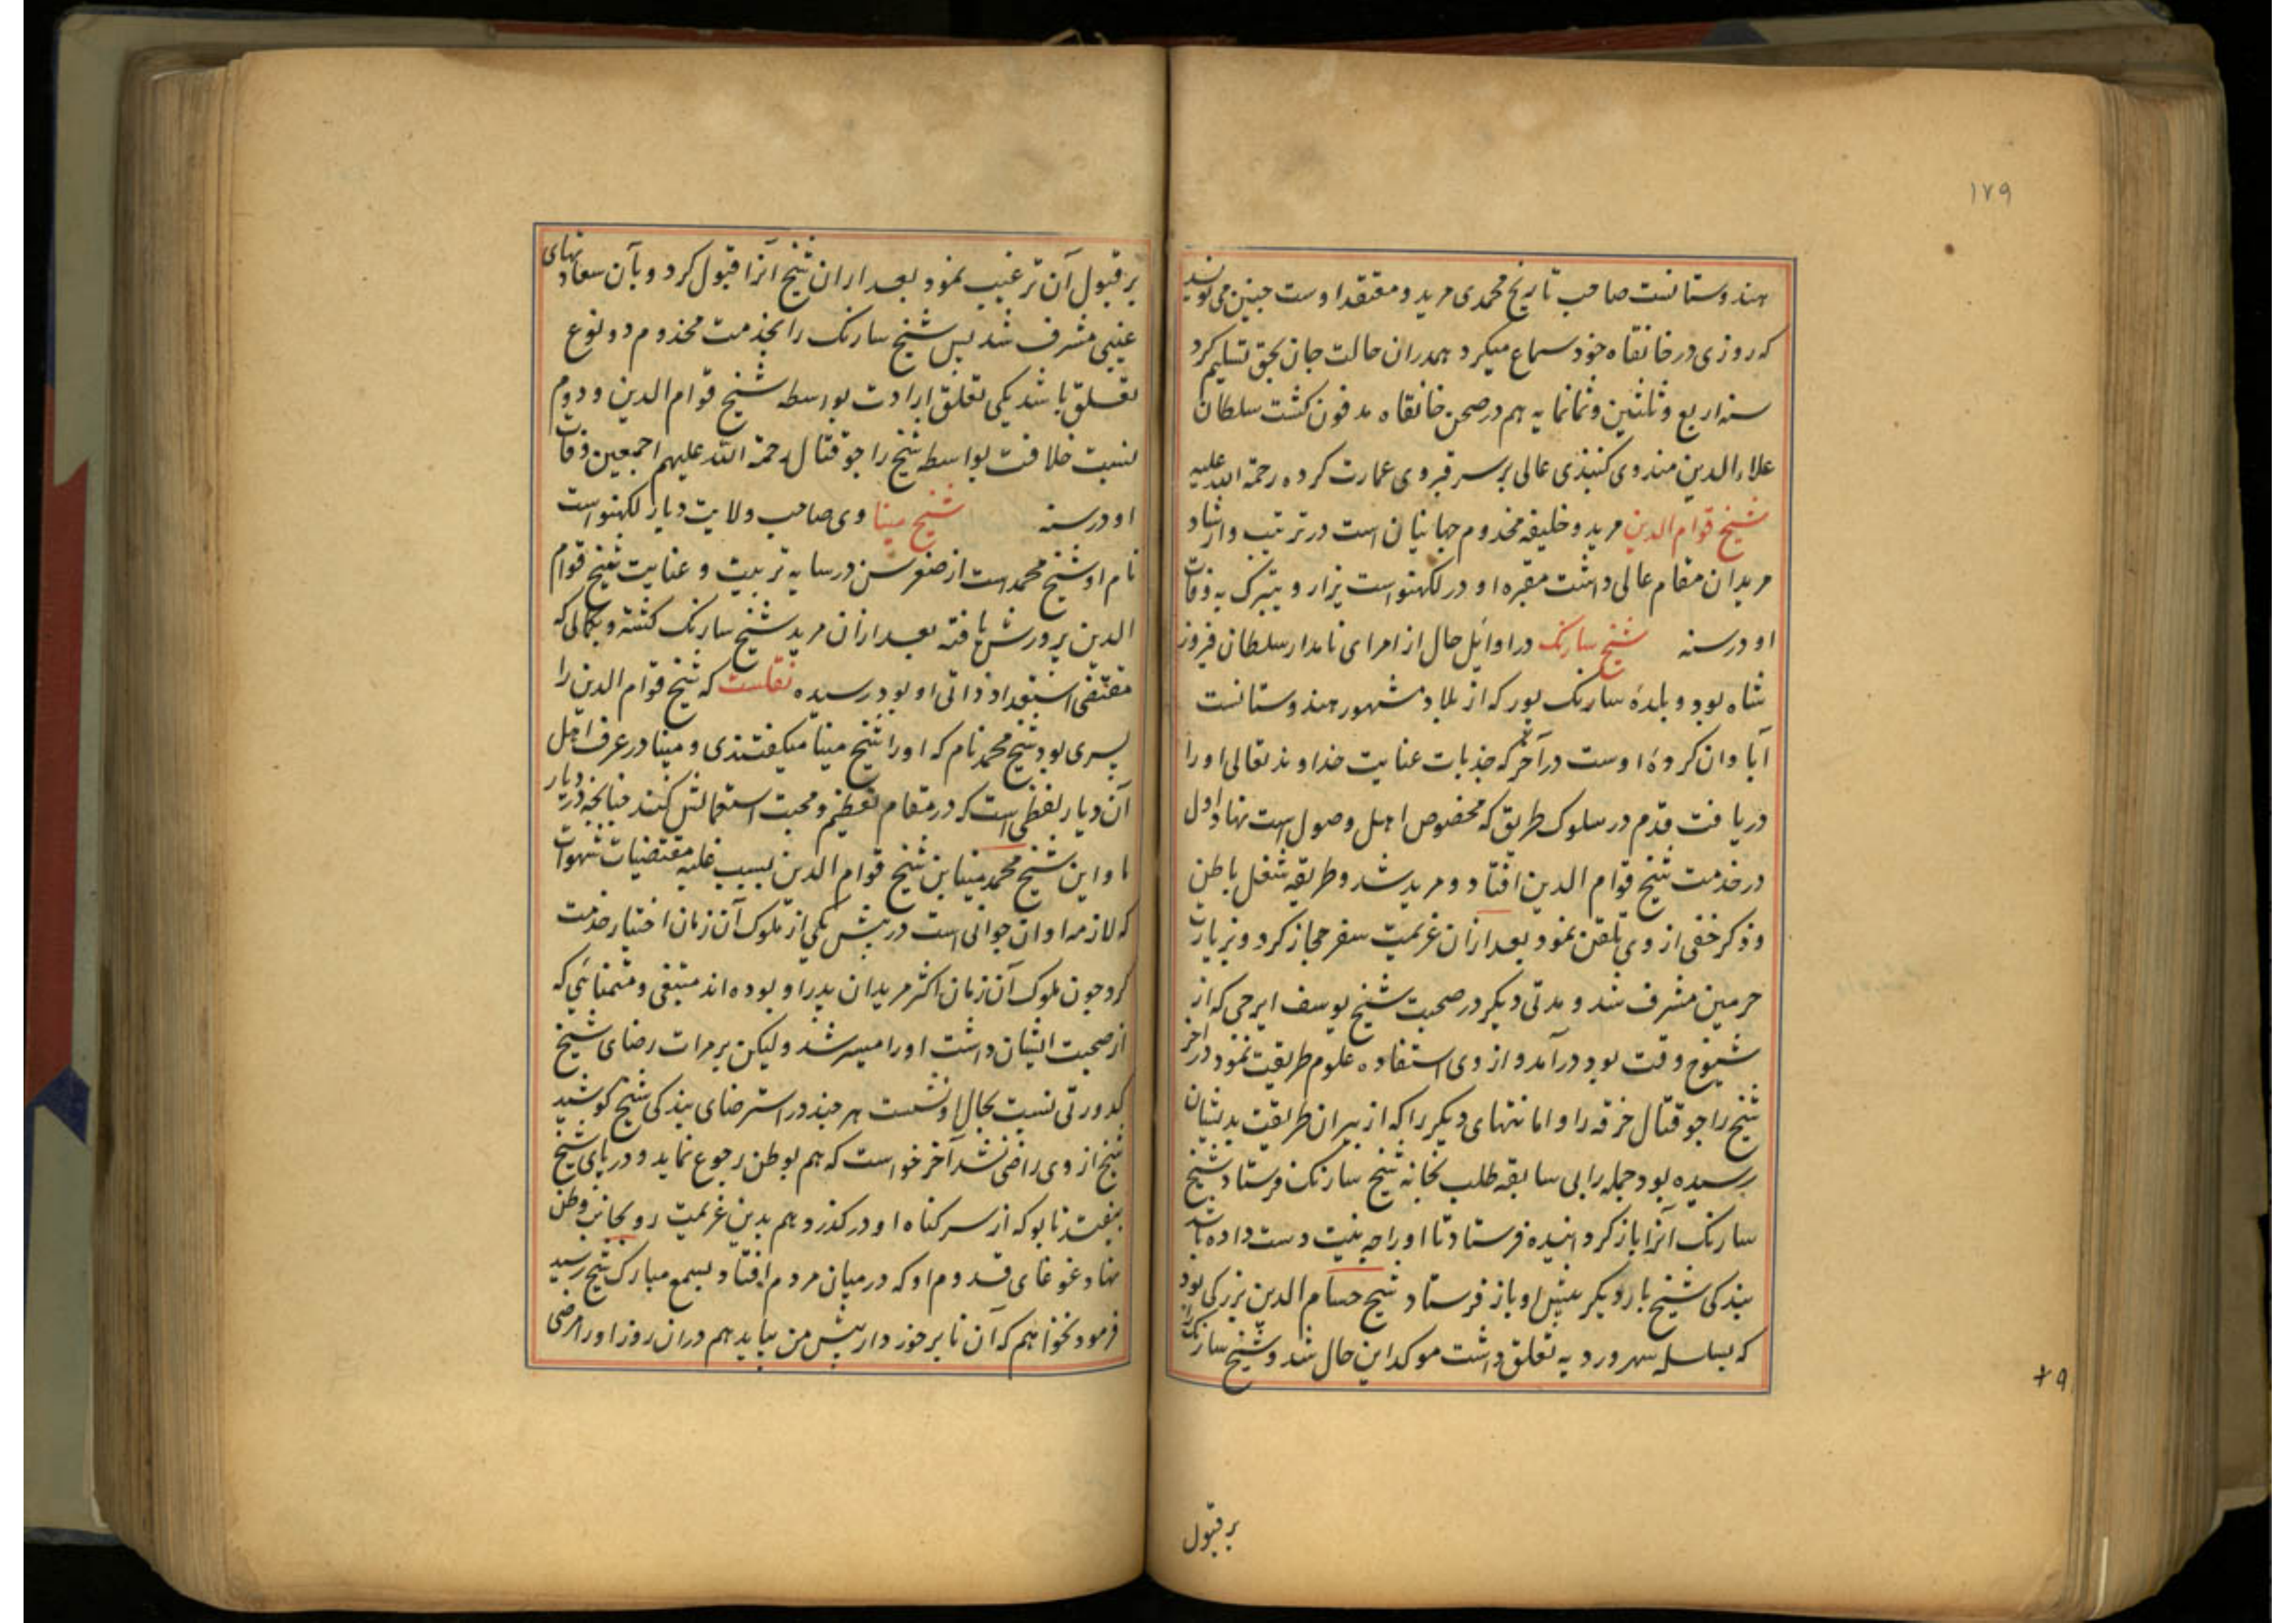 ١٧٩
هندوستانست صاحب تاریخ محمدی مرید و معتقد اوست چنین می نویسد
که روزی در خانقاه خود سماع میکرد همدران حالت جان بحق تسلیم کرد
سنه اربع و ثلثین و ثمانمایه هم در صحن خانقاه مدفون کشت سلطان
علاءالدین مندوی کنبذی عالی بر سر قبر وی عمارت کرده رحمة الله علیه
شیخ قوام الدین مرید و خلیفه مخدوم جهانیان است در ترتیب و ارشاد
مریدان مقام عالی داشت مقبره او در لکهنو است یزار و یتبرک به وفات
او در سنه شیخ سارنک در اوایل حال از امرای نامدار سلطان فیروز
شاه بود و بلدهٔ سارنک پور که از بلاد مشهور هندوستانست
آبادان کردهٔ اوست در آخر که جذبات عنایت خداوند تعالی او را
دریافت قدم در سلوک طریق که مخصوص اهل وصول است نهاد اول
در خدمت شیخ قوام الدین افتاد و مرید شد و طریقه شغل باطن
و ذکر خفی از وی تلقن نمود بعد ازان عزیمت سفر حجاز کرد و بزیارت
حرمین مشرف شد و مدتی دیکر در صحبت شیخ یوسف ایرجی که از
شیوخ وقت بود درآمد و از وی استفاده علوم طریقت نمود در آخر
شیخ راجو قتال خرقه را و امانتهای دیکر را که از پیران طریقت بدیشان
رسیده بود جمله را بی سابقه طلب بخانه شیخ سارنک فرستاد شیخ
سارنک آنرا باز کردانیده فرستاد تا او را چه بنیت دست داده باشد
بندکی شیخ بار دیکر پیش او باز فرستاد شیخ حسام الدین بزرکی بود
که بسلسله سهروردیه تعلق داشت موکد این حال شد و شیخ سارنک را
بر قبول
بر قبول آن ترغیب نمود بعد ازان شیخ آنرا قبول کرد و بآن سعادتهای
غیبی مشرف شد پس شیخ سارنک را بخدمت مخدوم دو نوع
تعلق باشد یکی تعلق ارادت بواسطه شیخ قوام الدین و دوم
نسبت خلافت بواسطه شیخ راجو قتال رحمة الله علیهم اجمعین وفات
او در سنه شیخ مینا وی صاحب ولایت دیار لکهنو است
نام او شیخ محمد است از صغر سن در سایه تربیت و عنایت شیخ قوام
الدین پرورش یافته بعد ازان مرید شیخ سارنک کشته و بکمالی که
مقتضی استعداد ذاتی او بود رسیده نقلست که شیخ قوام الدین را
پسری بود شیخ محمد نام که او را شیخ مینا میکفتندی و مینا در عرف اهل
آن دیار لفظی است که در مقام تعظیم و محبت استعمالش کنند چنانچه در دیار
ما و این شیخ محمد مینا بن شیخ قوام الدین بسبب غلبه مقتضیات شهوات
که لازمه اوان جوانی است در پیش یکی از ملوک آن زمان اختیار خدمت
کرد چون ملوک آن زمان اکثر مریدان پدر او بوده اند متبغی و متمنائی که
از صحبت ایشان داشت او را میسر شد ولیکن بر مرات رضای شیخ
کدورتی نسبت بحال او نشست هر چند در استرضای بندکی شیخ کوشید
شیخ از وی راضی نشد آخر خواست که هم بوطن رجوع نماید و در پای شیخ
بیفتد تا بو که از سر کناه او در کذرد هم بدین عزیمت رو بجانب وطن
نهاد غوغای قدوم او که در میان مردم افتاد بسمع مبارک شیخ رسید
فرمود نخواهم که آن نا برخوردار پیش من بیاید هم دران روز او را مرضی